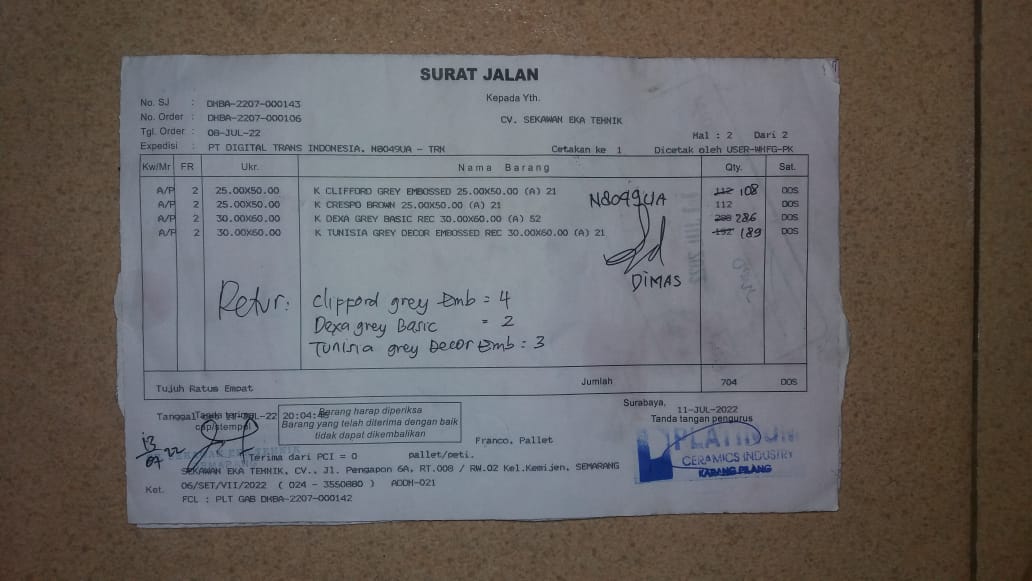 SURAT JALAN
No. SJ : DHBA-2207-000143
No. Order : DHBA-2207-000106
Tgl. Order : 08-JUL-22
Expedisi : PT DIGITAL TRANS INDONESIA. N8049UA - TRN
Kepada Yth.
CV. SEKAWAN EKA TEHNIK
Hal : 2 Dari 2
Cetakan ke 1 Dicetak oleh USER-WHFG-PK
Kw/Mr FR Ukr. Nama Barang Qty. Sat.
A/P 2 25.00X50.00 K CLIFFORD GREY EMBOSSED 25.00X50.00 (A) 21 112 108 DOS
A/P 2 25.00X50.00 K CRESPO BROWN 25.00X50.00 (A) 21 112 DOS
A/P 2 30.00X60.00 K DEXA GREY BASIC REC 30.00X60.00 (A) 52 288 286 DOS
A/P 2 30.00X60.00 K TUNISIA GREY DECOR EMBOSSED REC 30.00X60.00 (A) 21 192 189 DOS
N8049UA
DIMAS
Retur: Clifford grey Emb = 4
Dexa grey Basic = 2
Tunisia grey Decor Emb = 3
Tujuh Ratus Empat Jumlah 704 DOS
Surabaya, 11-JUL-2022
Tanda tangan pengurus
Tanggal 20:04:46
Tanda terima
cap/stempel
Barang harap diperiksa
Barang yang telah diterima dengan baik
tidak dapat dikembalikan
Franco. Pallet
13
07 22
Terima dari PCI = 0 pallet/peti.
SEKAWAN EKA TEHNIK, CV.. Jl. Pengapon 6A, RT.008 / RW.02 Kel.Kemijen, SEMARANG
Ket. 06/SET/VII/2022 ( 024 - 3550880 ) ADDH-021
FCL : PLT GAB DHBA-2207-000142
PLATINUM
CERAMICS INDUSTRY
KARANG PILANG